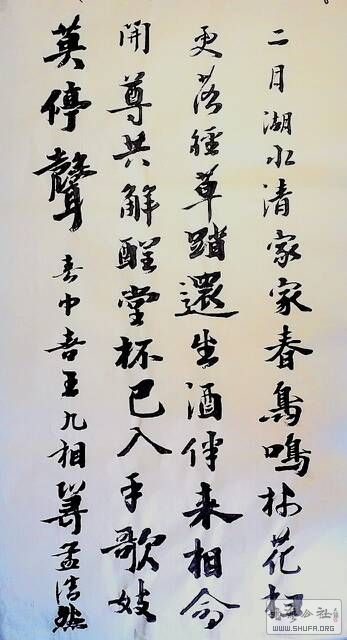 二月湖水清家家春鳥鳴林花扫
更落徑草踏還生酒伴来相命
開尊共解醒堂杯已入手歌妓
莫停聲 春中喜王九相尋孟浩然
公社
WWW.SHUFA.ORG